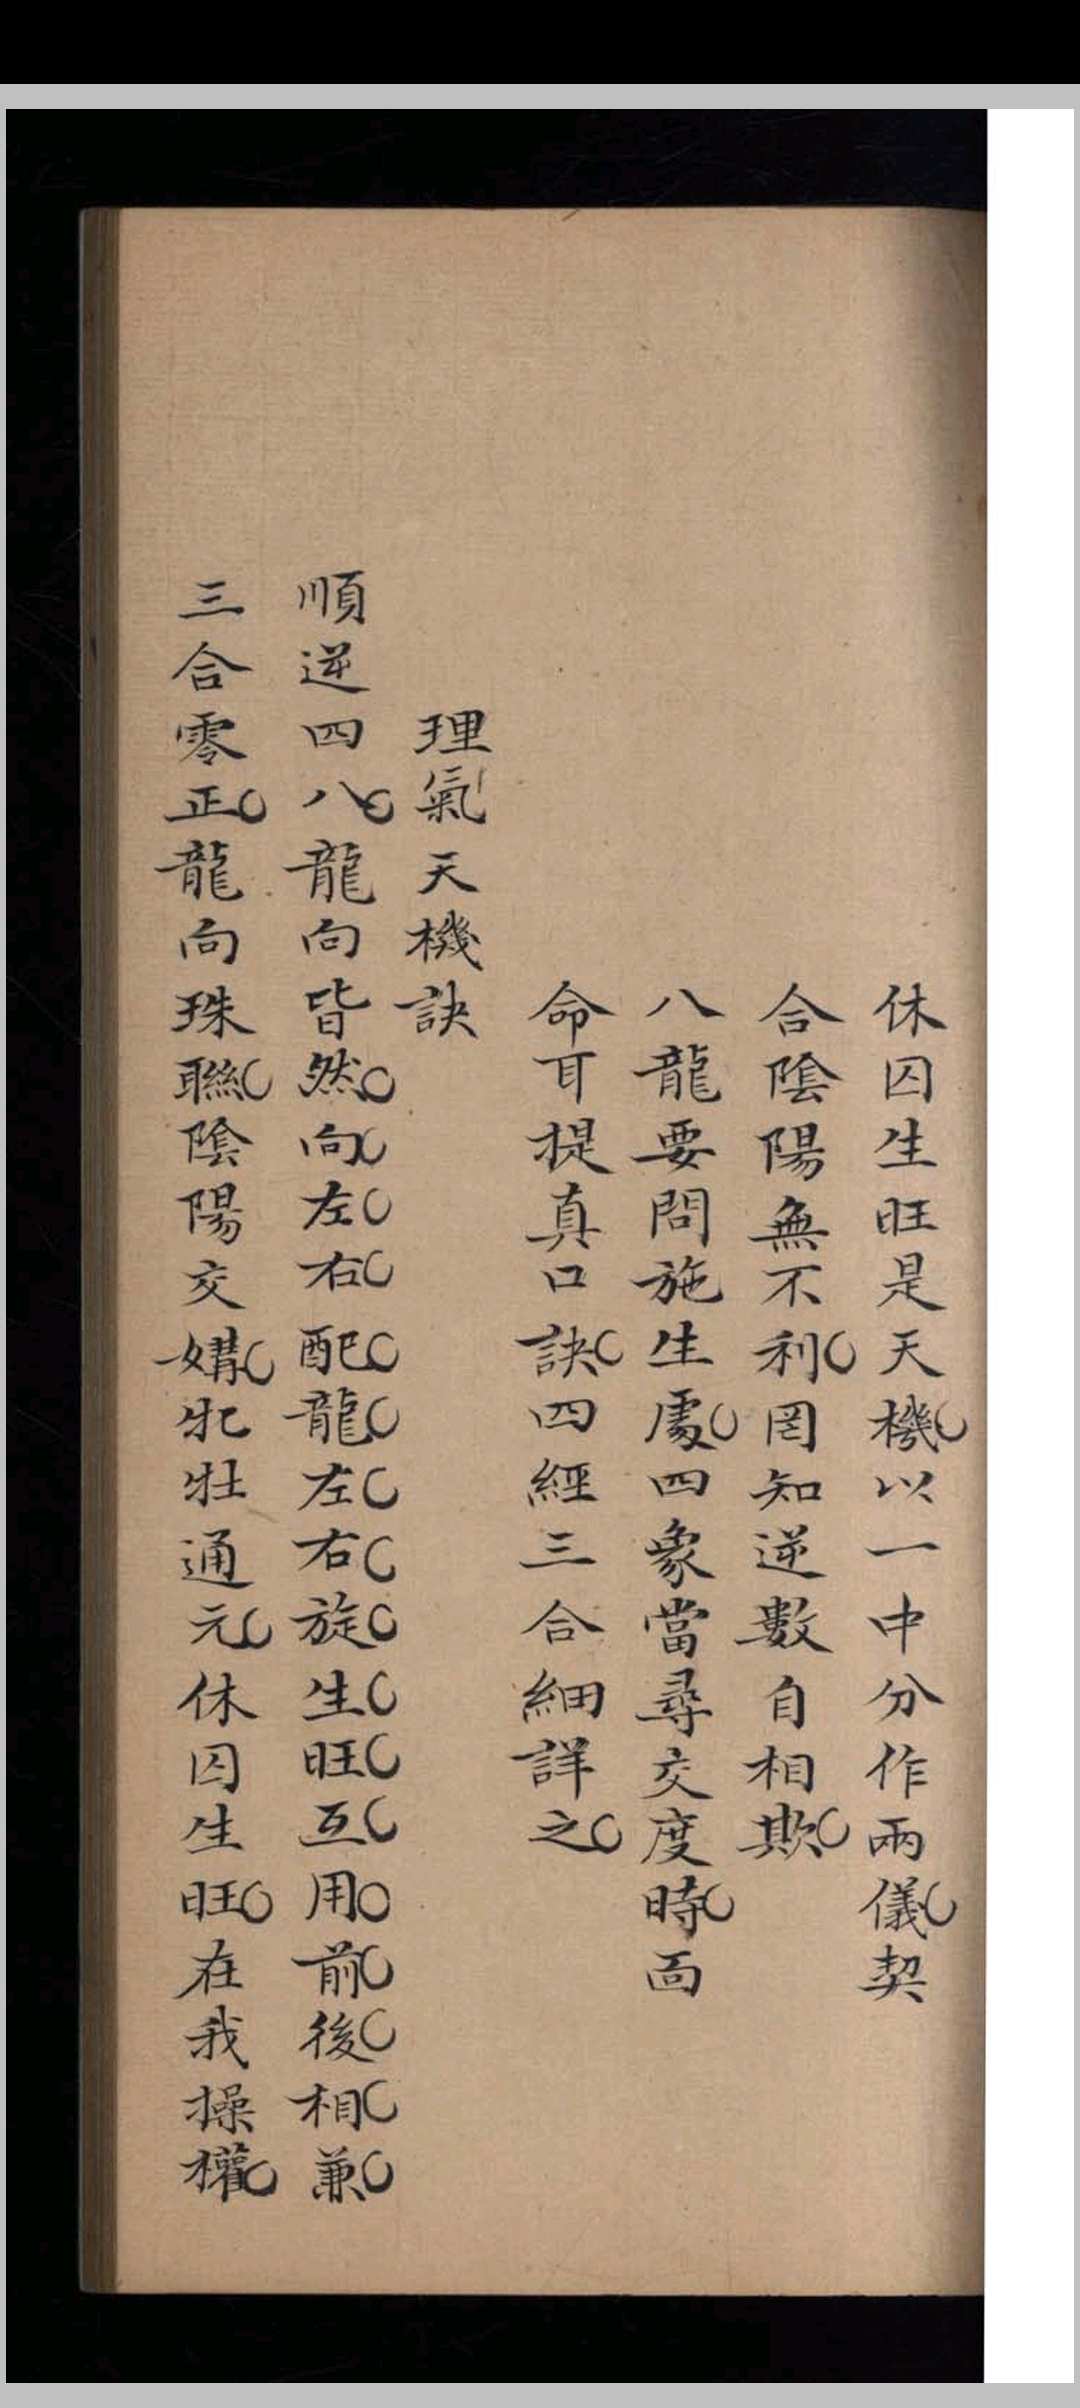 休囚生旺是天機以一中分作兩儀契
合陰陽無不利罔知逆數自相欺
八龍要問施生處四象當尋交度時面
命耳提真口訣四經三合細詳之
理氣天機訣
順逆四八龍向皆然向左右配龍左右旋生旺互用前後相兼
三合零正龍向珠聯陰陽交媾牝牡通元休囚生旺在我操權